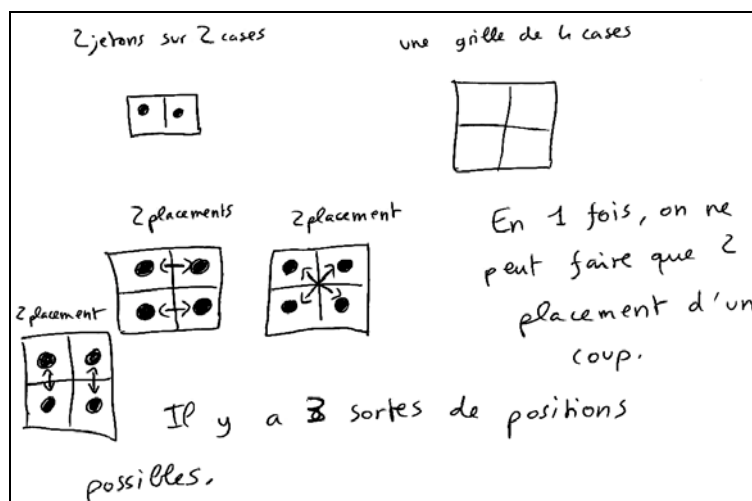 2 jetons sur 2 cases
une grille de 4 cases
2 placements
2 placement
2 placement
En 1 fois, on ne
peut faire que 2
placement d'un
coup.
Il y a 3 sortes de positions
possibles.